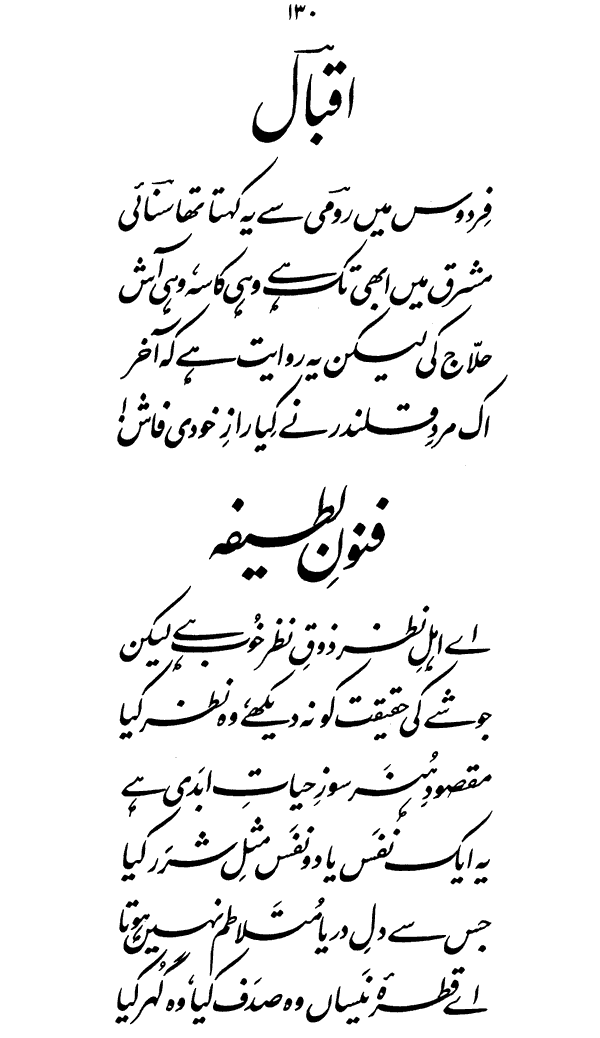 ۱۳۰
اقبال
فِردوس میں رومی سے یہ کہتا تھا سنائی
مشرق میں ابھی تک ہے وہی کاسہ، وہی آش
حلّاج کی لیکن یہ روایت ہے کہ آخر
اک مردِ قلندر نے کِیا رازِ خودی فاش!
فنونِ لطیفہ
اے اہلِ نظر ذوقِ نظر خُوب ہے لیکن
جو شے کی حقیقت کو نہ دیکھے، وہ نظر کیا
مقصودِ ہُنَر سوزِ حیاتِ ابَدی ہے
یہ ایک نفَس یا دو نفَس مثلِ شرَر کیا
جس سے دلِ دریا مُتَلاطم نہیں ہوتا
اے قطرۂ نَیساں وہ صدَف کیا، وہ گُہر کیا